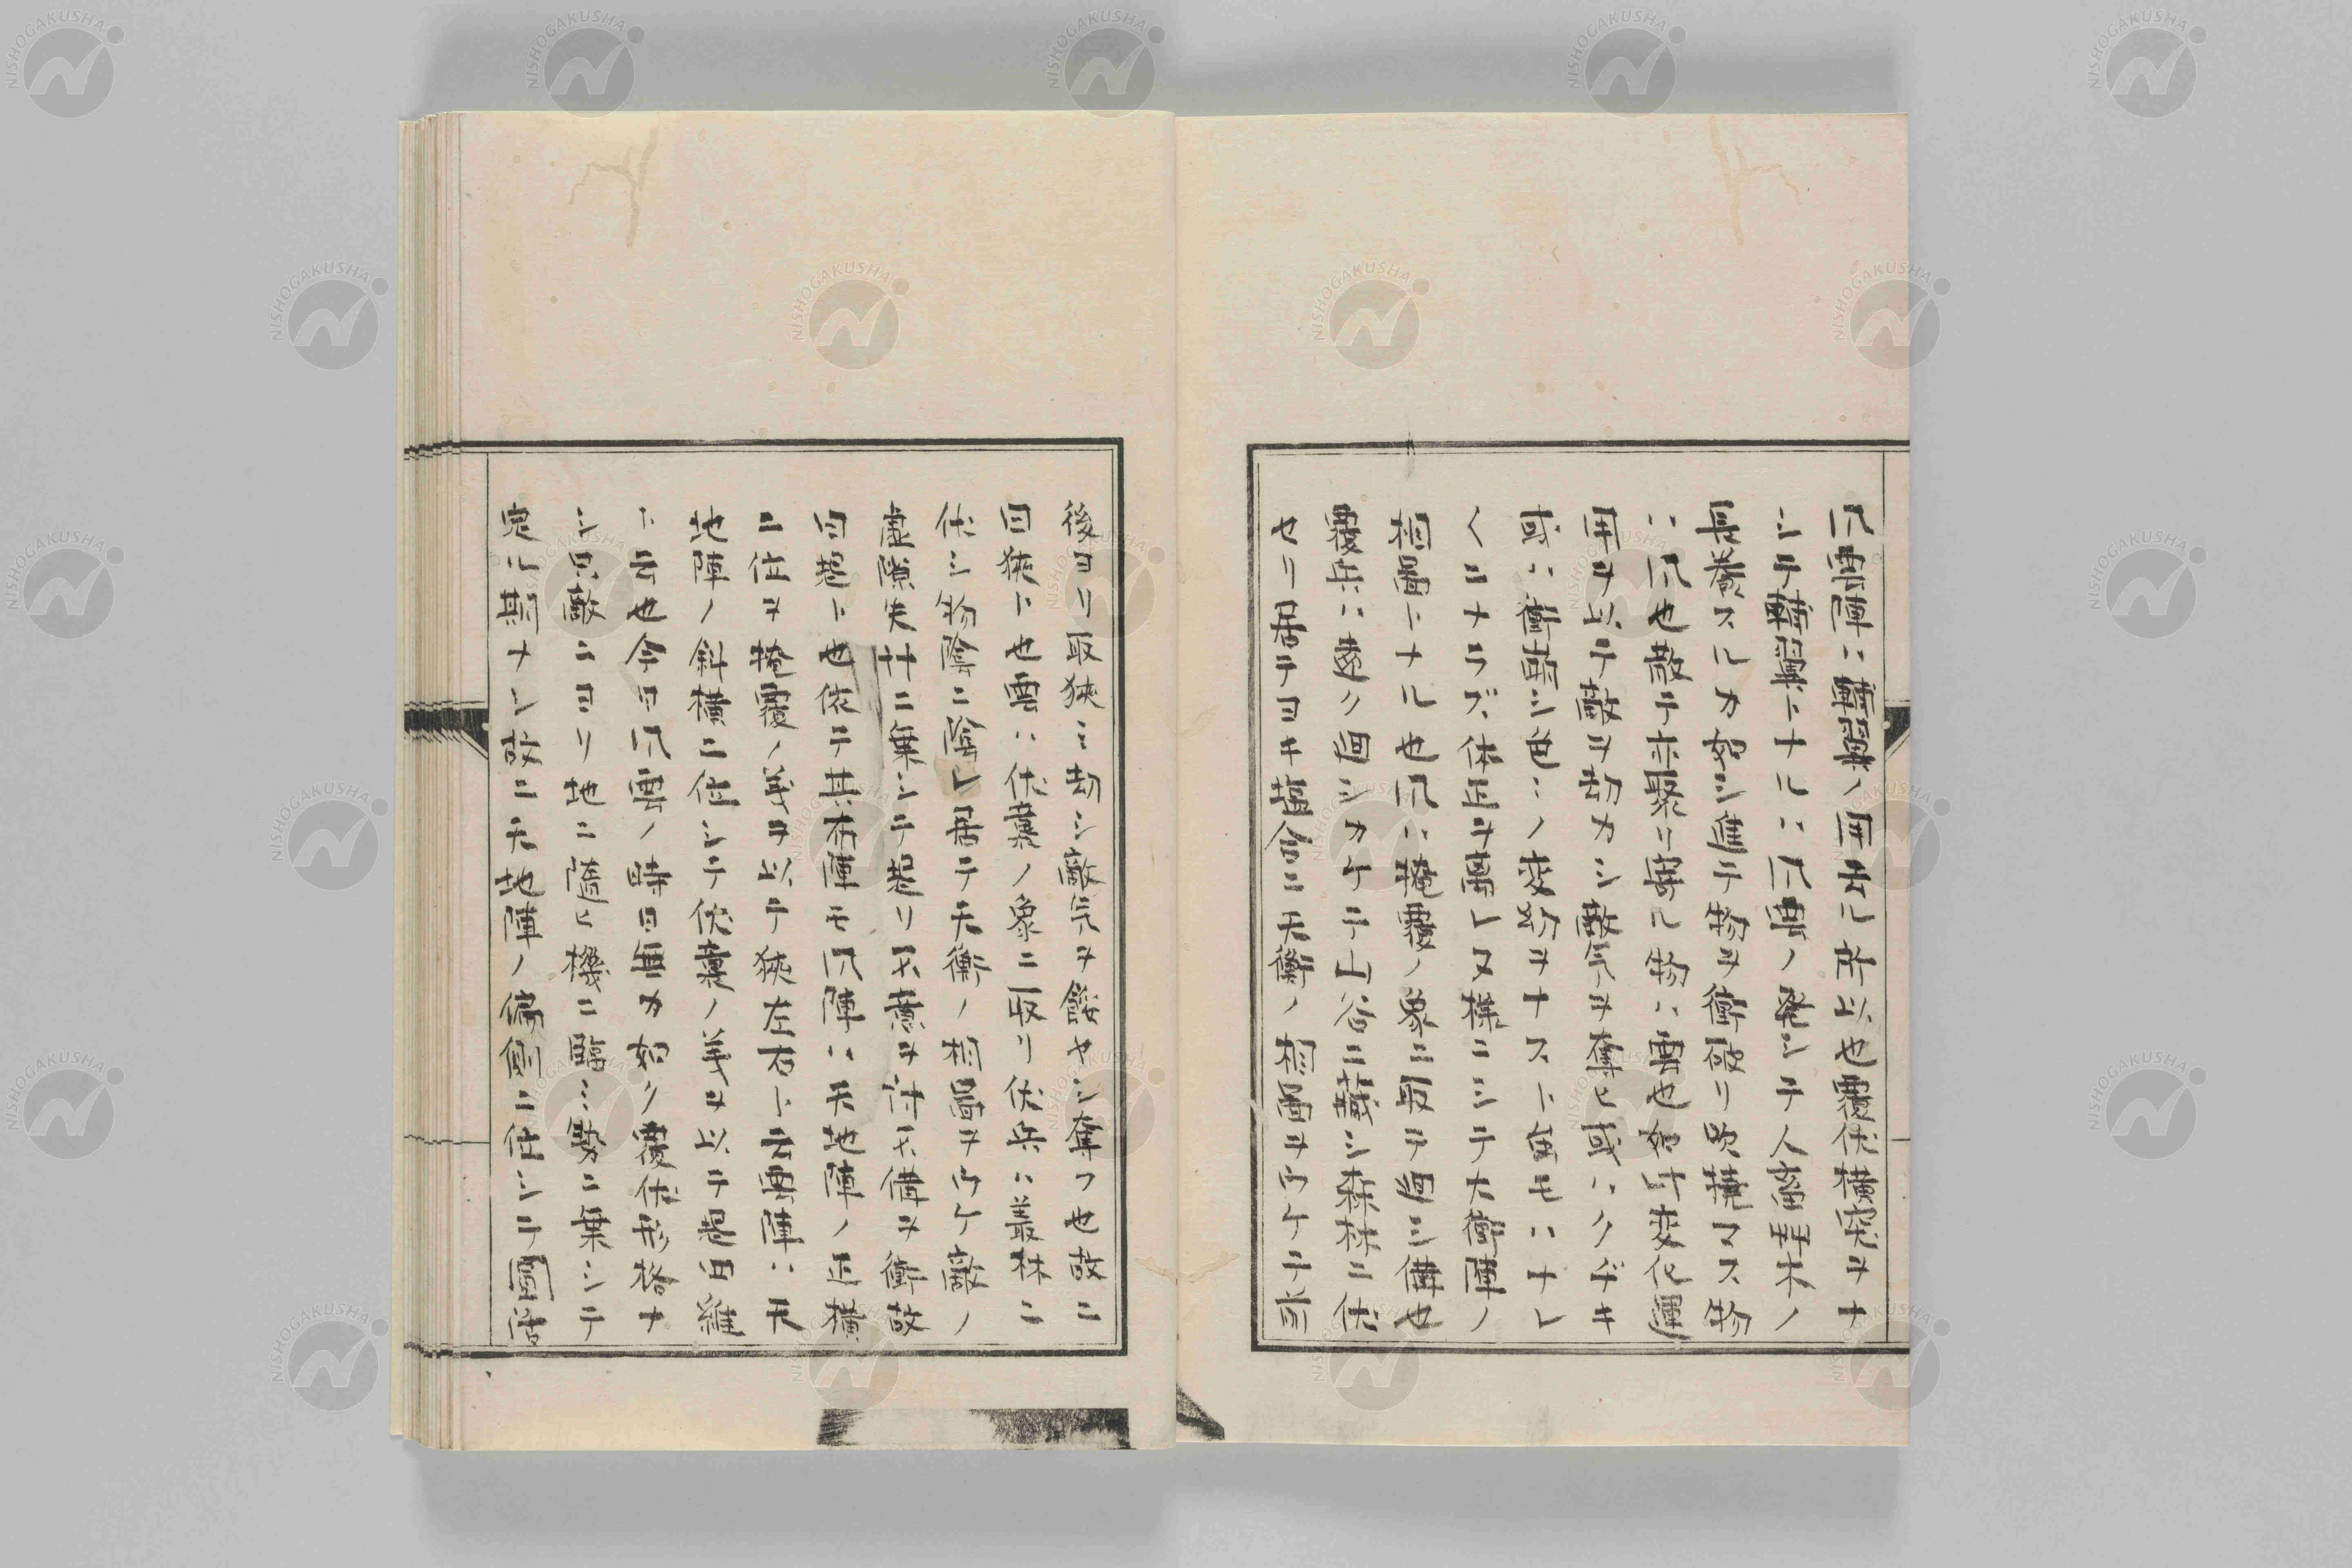 風雲陣ハ轉翼ノ因テ出ル所以也覆伏横突ヲナ
シテ轉翼トナルハ風雲ノ発シテ人畜群木ノ
長養スルカ如シ進テ物ヲ衝破リ吹撓マス物
ハ風也散テ亦聚リ密ル物ハ雲也如此変化運
用ヲ以テ敵ヲ劫カシ敵気ヲ奪ヒ或ハクヂキ
或ハ衝前シ色々ノ変動ヲナスト雖モハナレ
〱ニナラズ体正ヲ離レヌ様ニシテ天衝陣ノ
相圖トナル也風ハ掩覆ノ象ニ取テ廻シ備也
覆兵ハ遠ク廻シカケテ山谷ニ藏シ森林ニ伏
セリ居テヨキ塩合ニ天衝ノ相圖ヲウケテ前
後ヨリ取狹ミ劫シ敵気ヲ餒ヤシ奪フ也故ニ
曰狹ト也雲ハ伏蟄ノ象ニ取リ伏兵ハ叢林ニ
伏シ物陰ニ隠レ居テ天衝ノ相圖ヲウケ敵ノ
虚隙失廿ニ乗シテ起リ不意ヲ討不備ヲ衝故
曰起ト也依テ其本陣モ風陣ハ天地陣ノ正横
ニ位ヲ掩覆ノ義ヲ以テ狹左右ト云雲陣ハ天
地陣ノ斜横ニ位シテ伏蟄ノ義ヲ以テ起四維
ト云也今曰風雲ノ時ヨ無カ如ク覆伏形格ナ
シ只敵ニヨリ地ニ隨ヒ機ニ臨ミ勢ニ乗シテ
定ル期ナシ故ニ天地陣ノ傷側ニ位シテ圓活